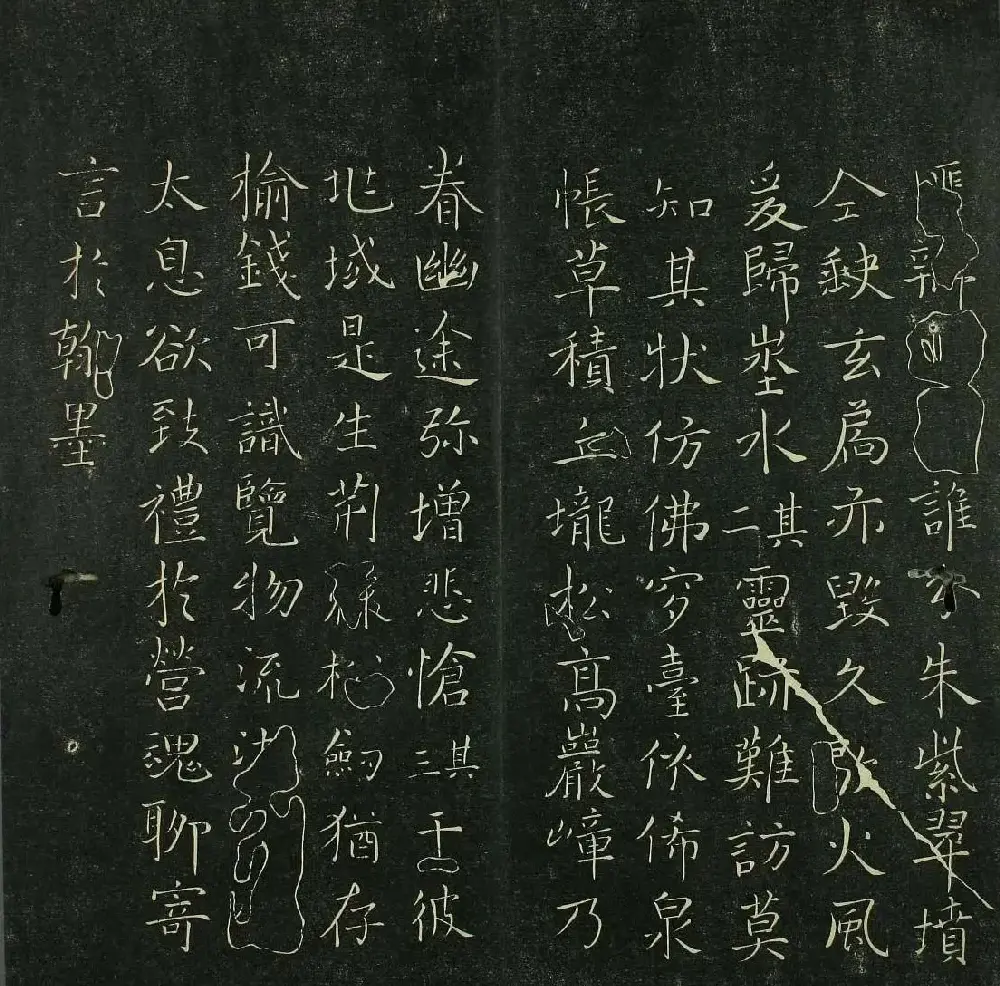 匪鄉誰分朱紫翠墳
仝鈌玄為亦毀久火風
爰歸埊水其二靈跡難訪莫
知其状仿佛穸臺依俙泉
帳草積丘壠松髙巖嶂乃
眷幽途弥增悲愴其三于彼
兆域是生荊棘松劒猶存
榆錢可識覽物流
太息欲致禮於營魂聊寄
言於翰墨